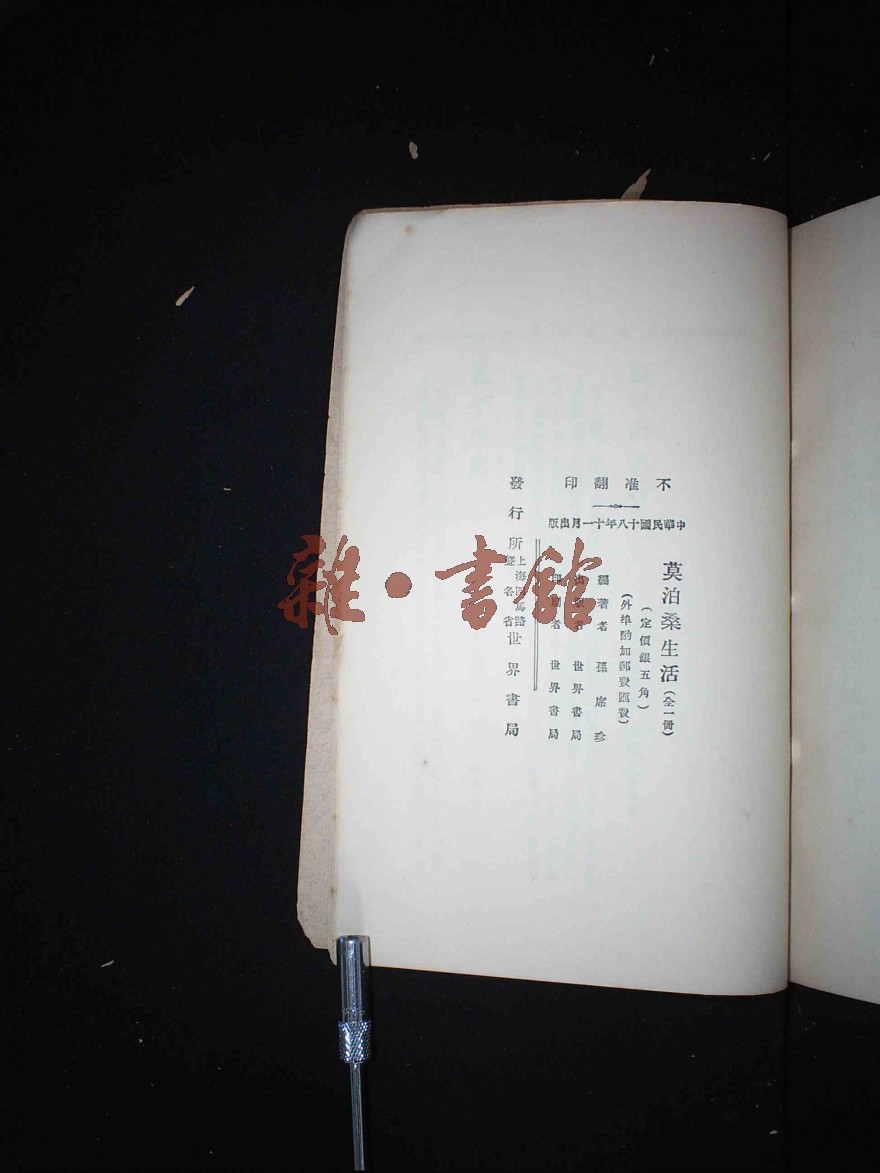 不准翻印
中華民國十八年十一月出版
莫泊桑生活(全一冊)
(定價銀五角)
(外埠酌加郵費匯費)
編著者 孫席珍
出版者 世界書局
印刷者 世界書局
發行所 上海四馬路暨各省 世界書局
雜·書館